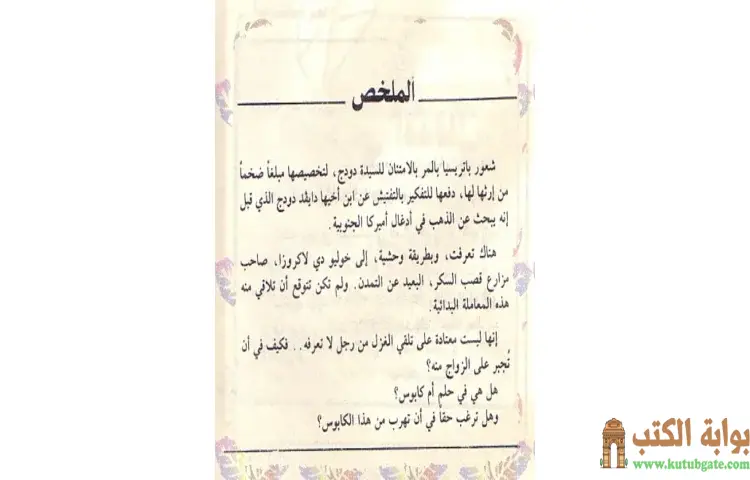 الملخص
شعور باتريسيا بالمر بالامتنان للسيدة دودج، لتخصيصها مبلغاً ضخماً
من إرثها لها، دفعها للتفكير بالتفتيش عن ابن أخيها دايفد دودج الذي قيل
إنه يبحث عن الذهب في أدغال أميركا الجنوبية.
هناك تعرفت، وبطريقة وحشية، إلى خوليو دي لاكروزا، صاحب
مزارع قصب السكر، البعيد عن التمدن. ولم تكن تتوقع أن تلاقي منه
هذه المعاملة البدائية.
إنها ليست معتادة على تلقي الغزل من رجل لا تعرفه.. فكيف في أن
تُجبر على الزواج منه؟
هل هي في حلم أم كابوس؟
وهل ترغب حقاً في أن تهرب من هذا الكابوس؟
بوابة الكتب
www.kutubgate.com